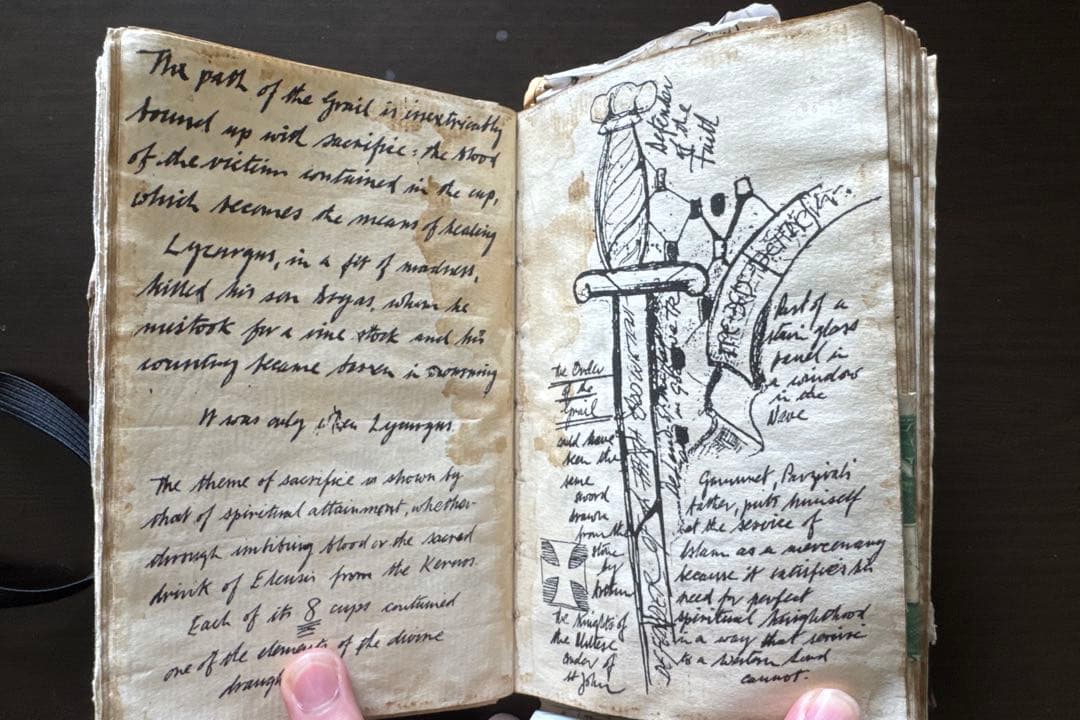 The path of the Grail is inextricably
bound up with sacrifice: the blood
of the victim contained in the cup,
which becomes the means of healing
Lycurgus, in a fit of madness,
killed his son Dryas, whom he
mistook for a vine stock and his
country became barren in mourning
It was only when Lycurgus
The theme of sacrifice is shown by
that of spiritual attainment, whether
through imbibing blood or the sacred
drink of Eleusis from the Kernos.
Each of its 8 cups contained
one of the elements of the divine
draugh
Defender
of the
Faith
Part of a
stain glass
panel in
a window
in the
Nave
The Order
of the
Grail
could have
been the
same
sword
drawn
from the
stone
by
Arthur
The Knights of
the Maltese
order of
St John
DEFENDER O
Gamuret, Parzival's
father, puts himself
at the service of
Islam as a mercenary
because it satisfies his
need for perfect
spiritual knighthood
in a way that service
to a western Lord
cannot.